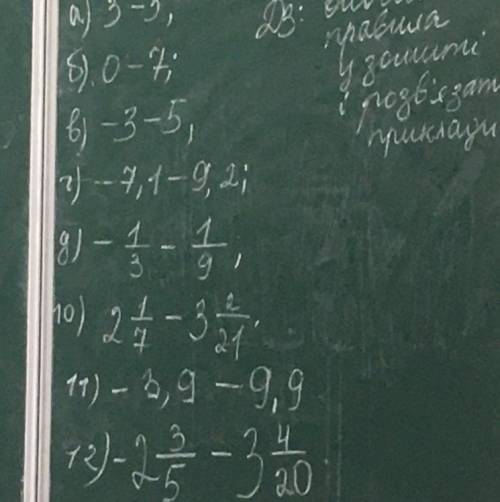 а) 3-5;
б). 0-7;
в) -3-5,
г) -7,1-9,2;
д) - 1/3 - 1/9,
10) 2 1/7 - 3 2/21.
11) -3,9-9,9
12) -2 3/5 - 3 4/20
ДЗ:
правила
у зошиті
і розв'язат
приклади